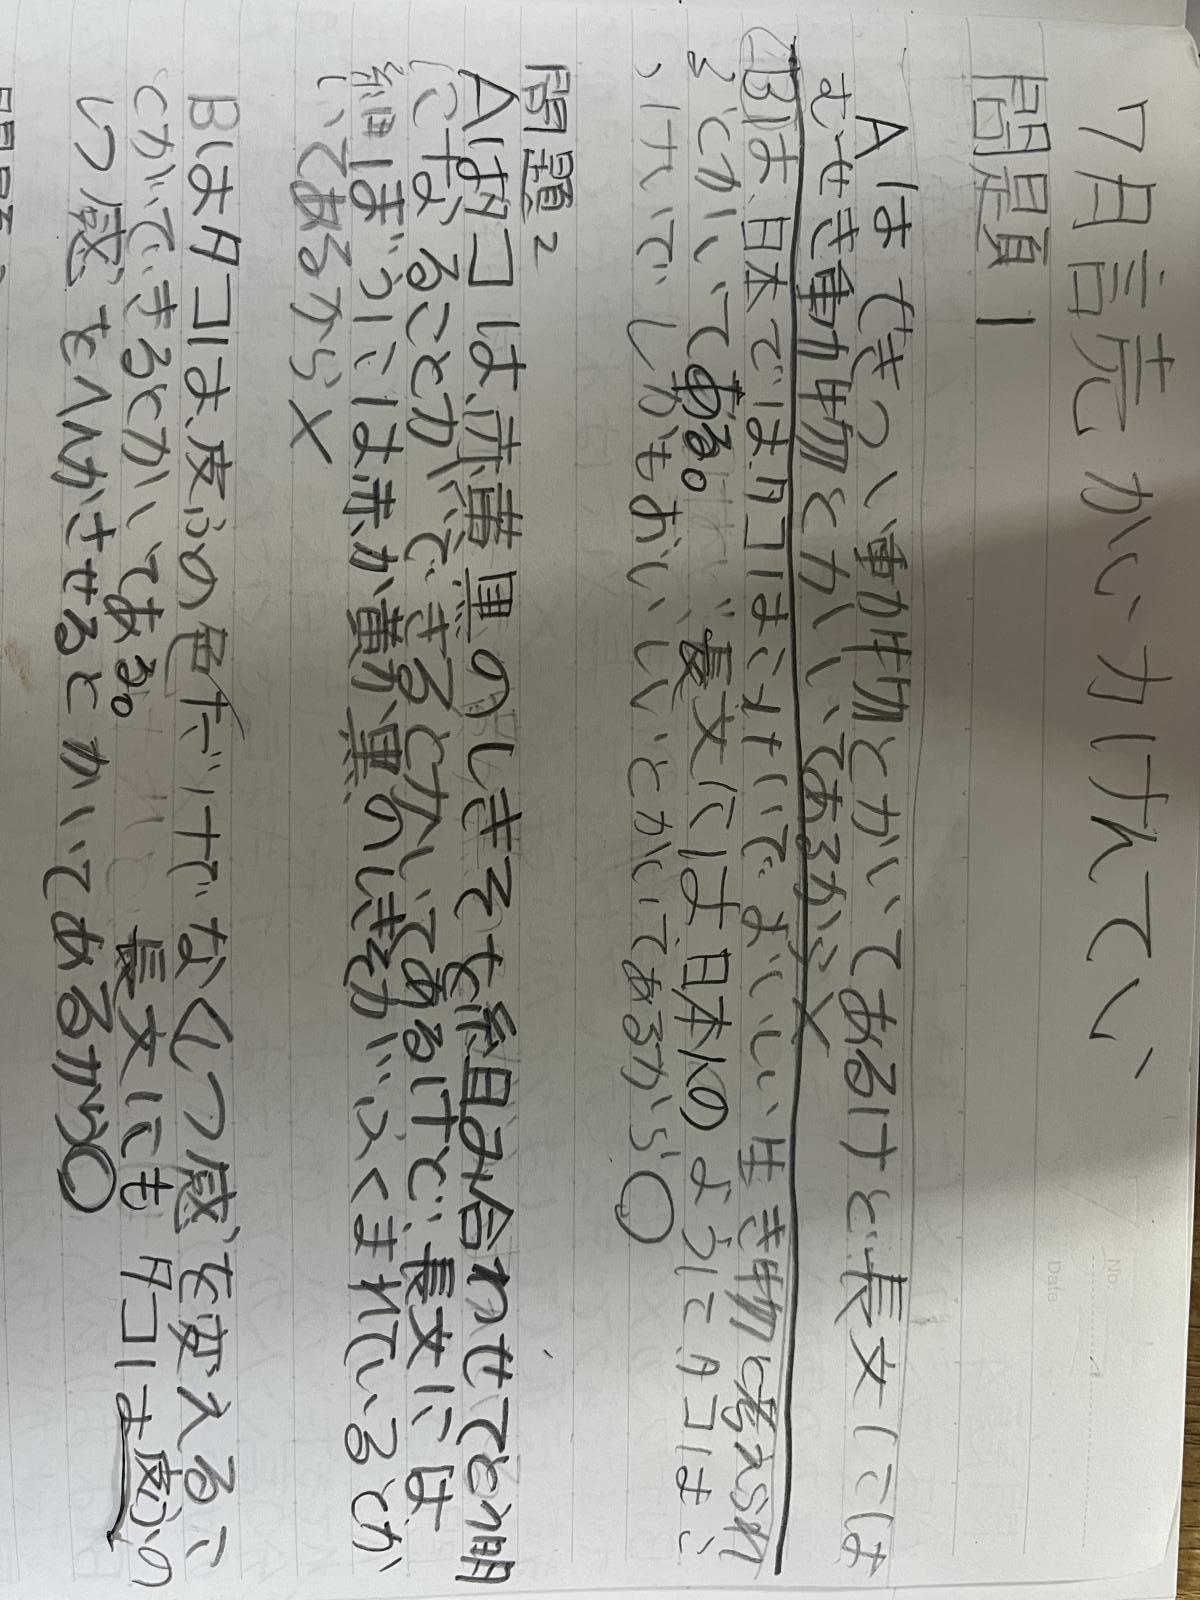 7月読かいかけんてい
No.
Date
問題1
Aはせきつい動物とかいてあるけど、長文には
むせき動物とかいてあるから×
Bは、日本ではタコはこわいでよいしい生き物と考えられ
るとかいてある。長文には、日本人のようにタコは、こ
わいでしかもおいしいとかいてあるから○
問題2
Aはタコは、赤黄黒のしきそを組み合わせてとう明
になることができるとかいてあるけど、長文には
細ぼうには赤か黄か黒のしきそがふくまれているとか
いてあるから×
Bはタコは、皮ふの色だけでなくしつ感を変えるこ
とができるとかいてある。長文にもタコは皮ふの
しつ感をへんかさせるとかいてあるから○